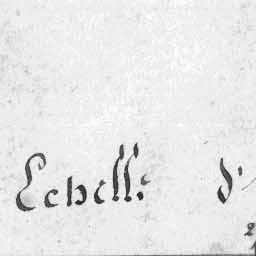 Echelle d'
2